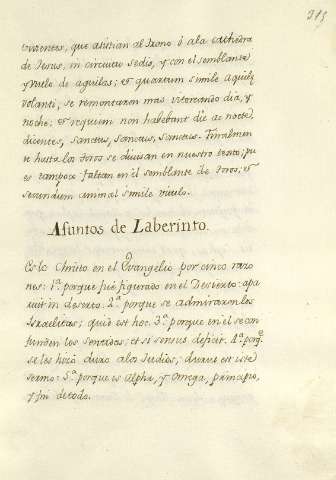 215
vivientes, que asistian al trono ó a la cathedra
de Jesus, in circuitu sedis, y con el semblante
y vuelo de aguilas; et quartum simile aquilę
volanti, se remontaron mas vitoreando dia, y
noche: et requiem non habebant die ac nocte
dicentes, Sanctus, sanctus, sanctus. Finalmen
te hasta los toros se divisan en nuestro texto; pu
es tampoco faltan en el semblante de toros; et
secundum animal simile vitulo.
Asuntos de Laberinto.
Es lo Christo en el Evangelio por cinco razo
nes: 1ª. porque fué figurado en el Desierto: apa
ruit in deserto. 2ª. porque se admiraron los
Israelitas; quid est hoc. 3ª. porque en el se con
funden los sentidos; et si sensus deficit. 4ª. porq.
se les hizó duro a los Judios; durus est iste
sermo: 5ª. porque es Alpha, y Omega, principio,
y fin de todo.